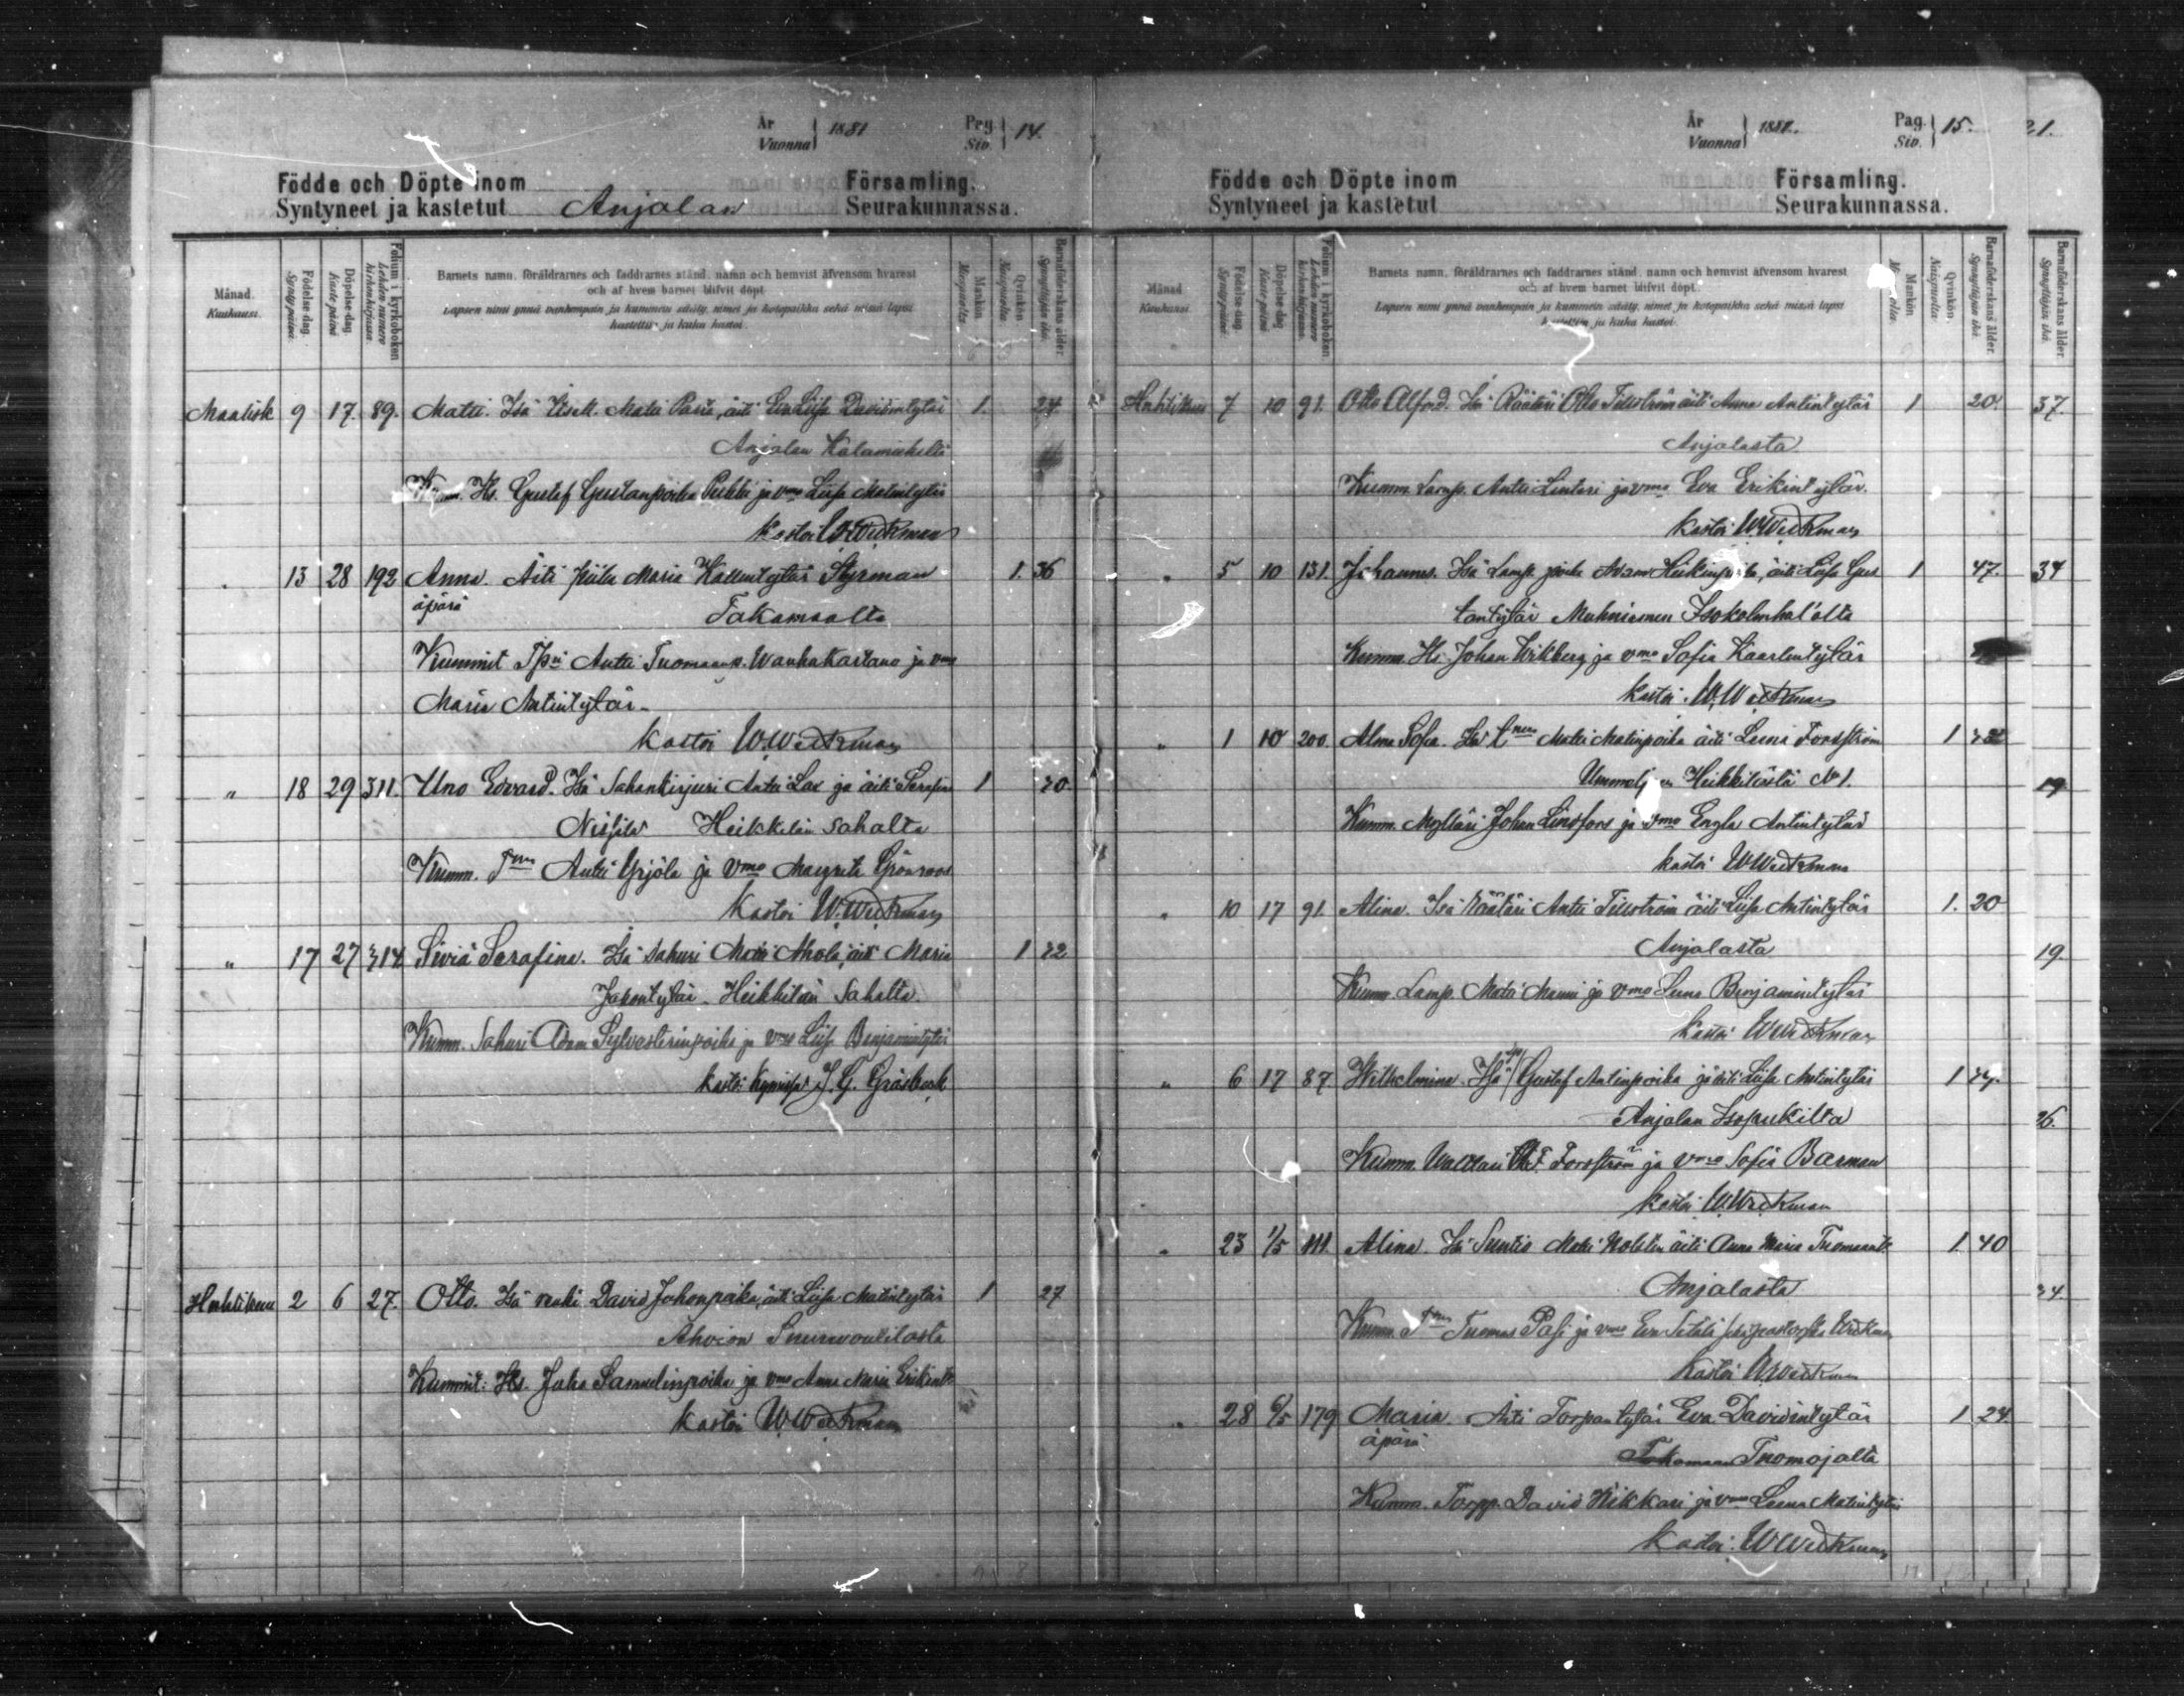 År 1881 Pag. 14.
Vuonna Siv.
Födde och Döpte inom Församling.
Syntyneet ja kastetut Anjalan Seurakunnassa.
Månad. Kuukausi.
Födelse-dag. Syntypäivä.
Döpelse-dag. Kaste-päivä
Folium i kyrkoboken Lehden numero kirkonkirjassa.
Barnets namn, föräldrarnes och faddrarnes stånd, namn och hemvist äfvensom hvarest
och af hvem barnet blifvit döpt.
Lapsen nimi ynnä vanhempain ja kummein sääty, nimet ja kotopaikka sekä missä lapsi
kastettiin ja kuka kastoi.
Mankön. Miespuolta.
Qvinkön. Naispuolta.
Barnaföderskans ålder. Synnyttäjän ikä.
Maalisk 9 17. 89. Matti. Isä Itsell. Matti äiti Eva Liisa Davidintytär 1. 24.
Anjalan
Kumm. Hs. Gustaf Gustanpoika ja vmo Liisa Matintytär
kastoi W. Weckman
" 13 28 192 Anna. Äiti piika Maria Kallentytär Styrman 1. 36
äpärä Takamaalta
Kummit Antti Tuomaanp. Wanhakartano ja vmo
Maria Antintytär
kastoi W. Weckman
" 18 29 311. Uno Edvard. Isä Sahankirjuri Antti Lax ja äiti Serafina 1 30
Heikkilän sahalta
Kumm. Antti Yrjölä ja vmo Margreta Grönroos
kastoi W. Weckman
" 17 27 314 Siviä Serafina. Isä Sahuri Matti Ahola, äiti Maria 1 32
Jakontytär Heikkilän Sahalta.
Kumm. Sahuri Adam Sylvesterinpoika ja vmo Liisa Benjamintytär
kastoi J. G. Gråsbeck
Huhtikuu 2 6 27. Otto. Isä renki David Johonpoika, äiti Liisa Matintytär 1 27
Ahvion
Kummit: Hs. Juho Samulinpoika ja vmo Anna Maria Erikint.
kastoi W. Weckman
År 1881. Pag. 15.
Vuonna Siv.
21.
Födde och Döpte inom Församling.
Syntyneet ja kastetut Seurakunnassa.
Månad. Kuukausi.
Födelse-dag. Syntypäivä.
Döpelse-dag. Kaste-päivä
Folium i kyrkoboken Lehden numero kirkonkirjassa.
Barnets namn, föräldrarnes och faddrarnes stånd, namn och hemvist äfvensom hvarest
och af hvem barnet blifvit döpt.
Lapsen nimi ynnä vanhempain ja kummein sääty, nimet ja kotopaikka sekä missä lapsi
kastettiin ja kuka kastoi.
Mankön.
Qvinkön. Naispuolta.
Barnaföderskans ålder. Synnyttäjän ikä.
Barnaföderskans ålder. Synnyttäjän ikä.
Huhtikuu 7 10 91. Otto Alfred. Isä Räätäri Otto Tillström äiti Anna Antintytär 1 20. 37.
Anjalasta
Kumm. Lamp. Antti Lintari ja vmo Eva Erikintytär.
kastoi W. Weckman
" 5 10 131. Johannes. Isä Lamp. poika Adam Heikinpoika, äiti Liisa Gus 1 47. 34
tantytär Muhniemen
Kumm. Hs. Johan Wikberg ja vmo Sofia Kaarlentytär
kastoi W. Weckman
" 1 10 200. Alma Sofia. Isä Matti Matinpoika äiti Leena Forsström 1
Ummeljoen Heikkilästä No 1. 19
Kumm. Mylläri Johan Lindfors ja vmo Engla Antintytär
kastoi W. Weckman
" 10 17 91. Alina. Isä Räätäri Antti Tillström äiti Liisa Antintytär 1. 20
Anjalasta 19.
Kumm. Lamp. Matti Manni ja vmo Leena Benjamintytär
kastoi W. Weckman
" 6 17 87 Wilhelmina. Isä Gustaf Antinpoika ja äiti Liisa Antintytär 1
Anjalan 26.
Kumm. Forsström ja vmo Sofia Barman
kastoi W. Weckman
" 23 1/5 111. Alina. Isä Suntio Matti Holsten äiti Anna Maria Tuomaant. 1. 40
Anjalasta 34.
Kumm. Tuomas Pasi ja vmo Eva
kastoi W. Weckman
" 28 6/5 179 Maria. Äiti Torpan tytär Eva Davidintytär 1 24
äpärä Tuomojalta
Kumm. Torpp. David Kikkari ja vmo Leena Matintytär
kastoi: W. Weckman